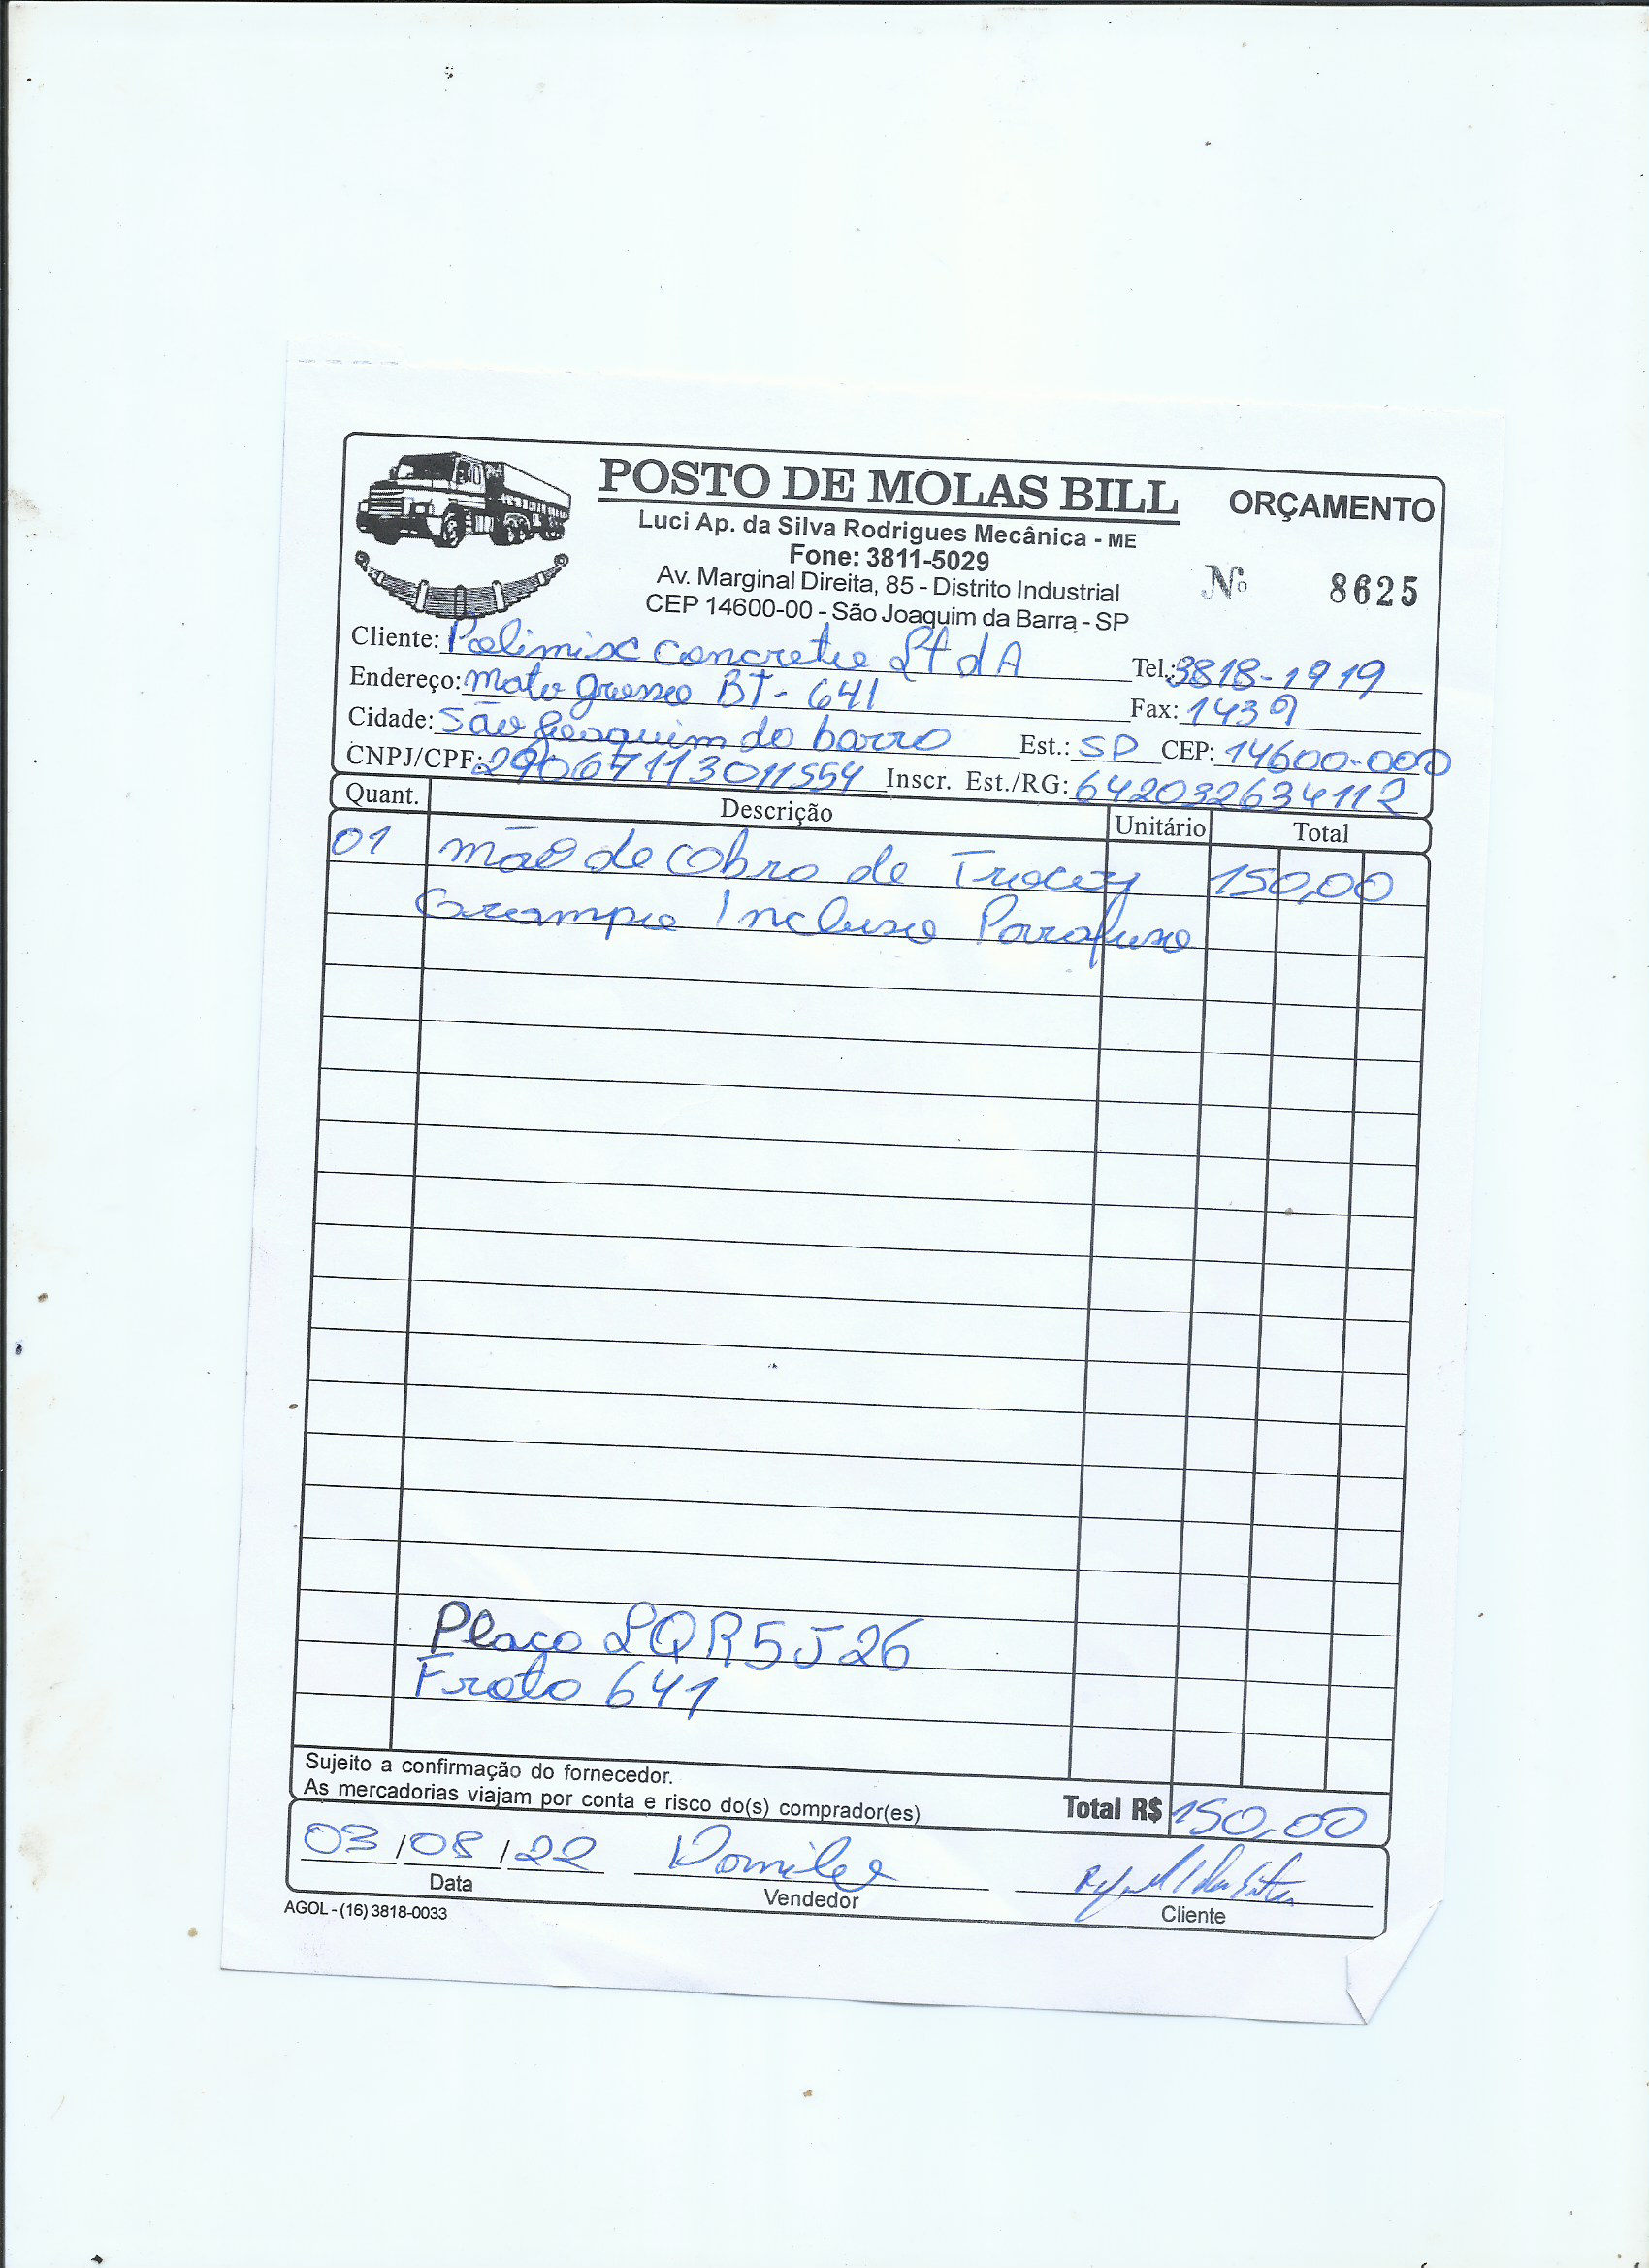 POSTO DE MOLAS BILL ORÇAMENTO
Luci Ap. da Silva Rodrigues Mecânica - ME
Fone: 3811-5029
Av. Marginal Direita, 85 - Distrito Industrial
Nº 8625
CEP 14600-00 - São Joaquim da Barra - SP
Cliente: Polimix concreto LtdA Tel.: 3818-1919
Endereço: Mato Grosso BT-641 Fax: 1439
Cidade: São Joaquim da barra Est.: SP CEP: 14600-000
CNPJ/CPF: 29067113011554 Inscr. Est./RG: 642032634112
Quant. Descrição Unitário Total
01 mão de Obra de Trocar 150,00
Grampo Incluso Parafuso
Placa LQR5J26
Frota 641
Sujeito a confirmação do fornecedor.
As mercadorias viajam por conta e risco do(s) comprador(es) Total R$ 150,00
03/08/22
Data Vendedor Cliente
AGOL - (16) 3818-0033